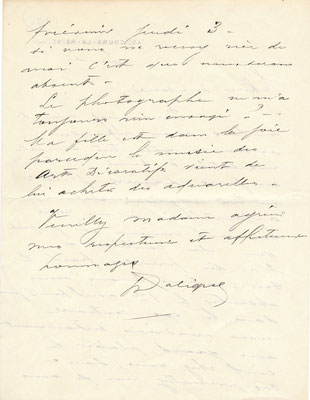 prochain jeudi 3 -
si vous ne voyez rien de
moi c'est que nous serons
absents -
Le photographe ne m'a
toujours rien envoyé - ? -
Ma fille est dans la joie
parceque le musée des
Art Décoratifs vient de
lui acheter des aquarelles -
Veuillez madame agréer
mes respectueux et affectueux
hommages